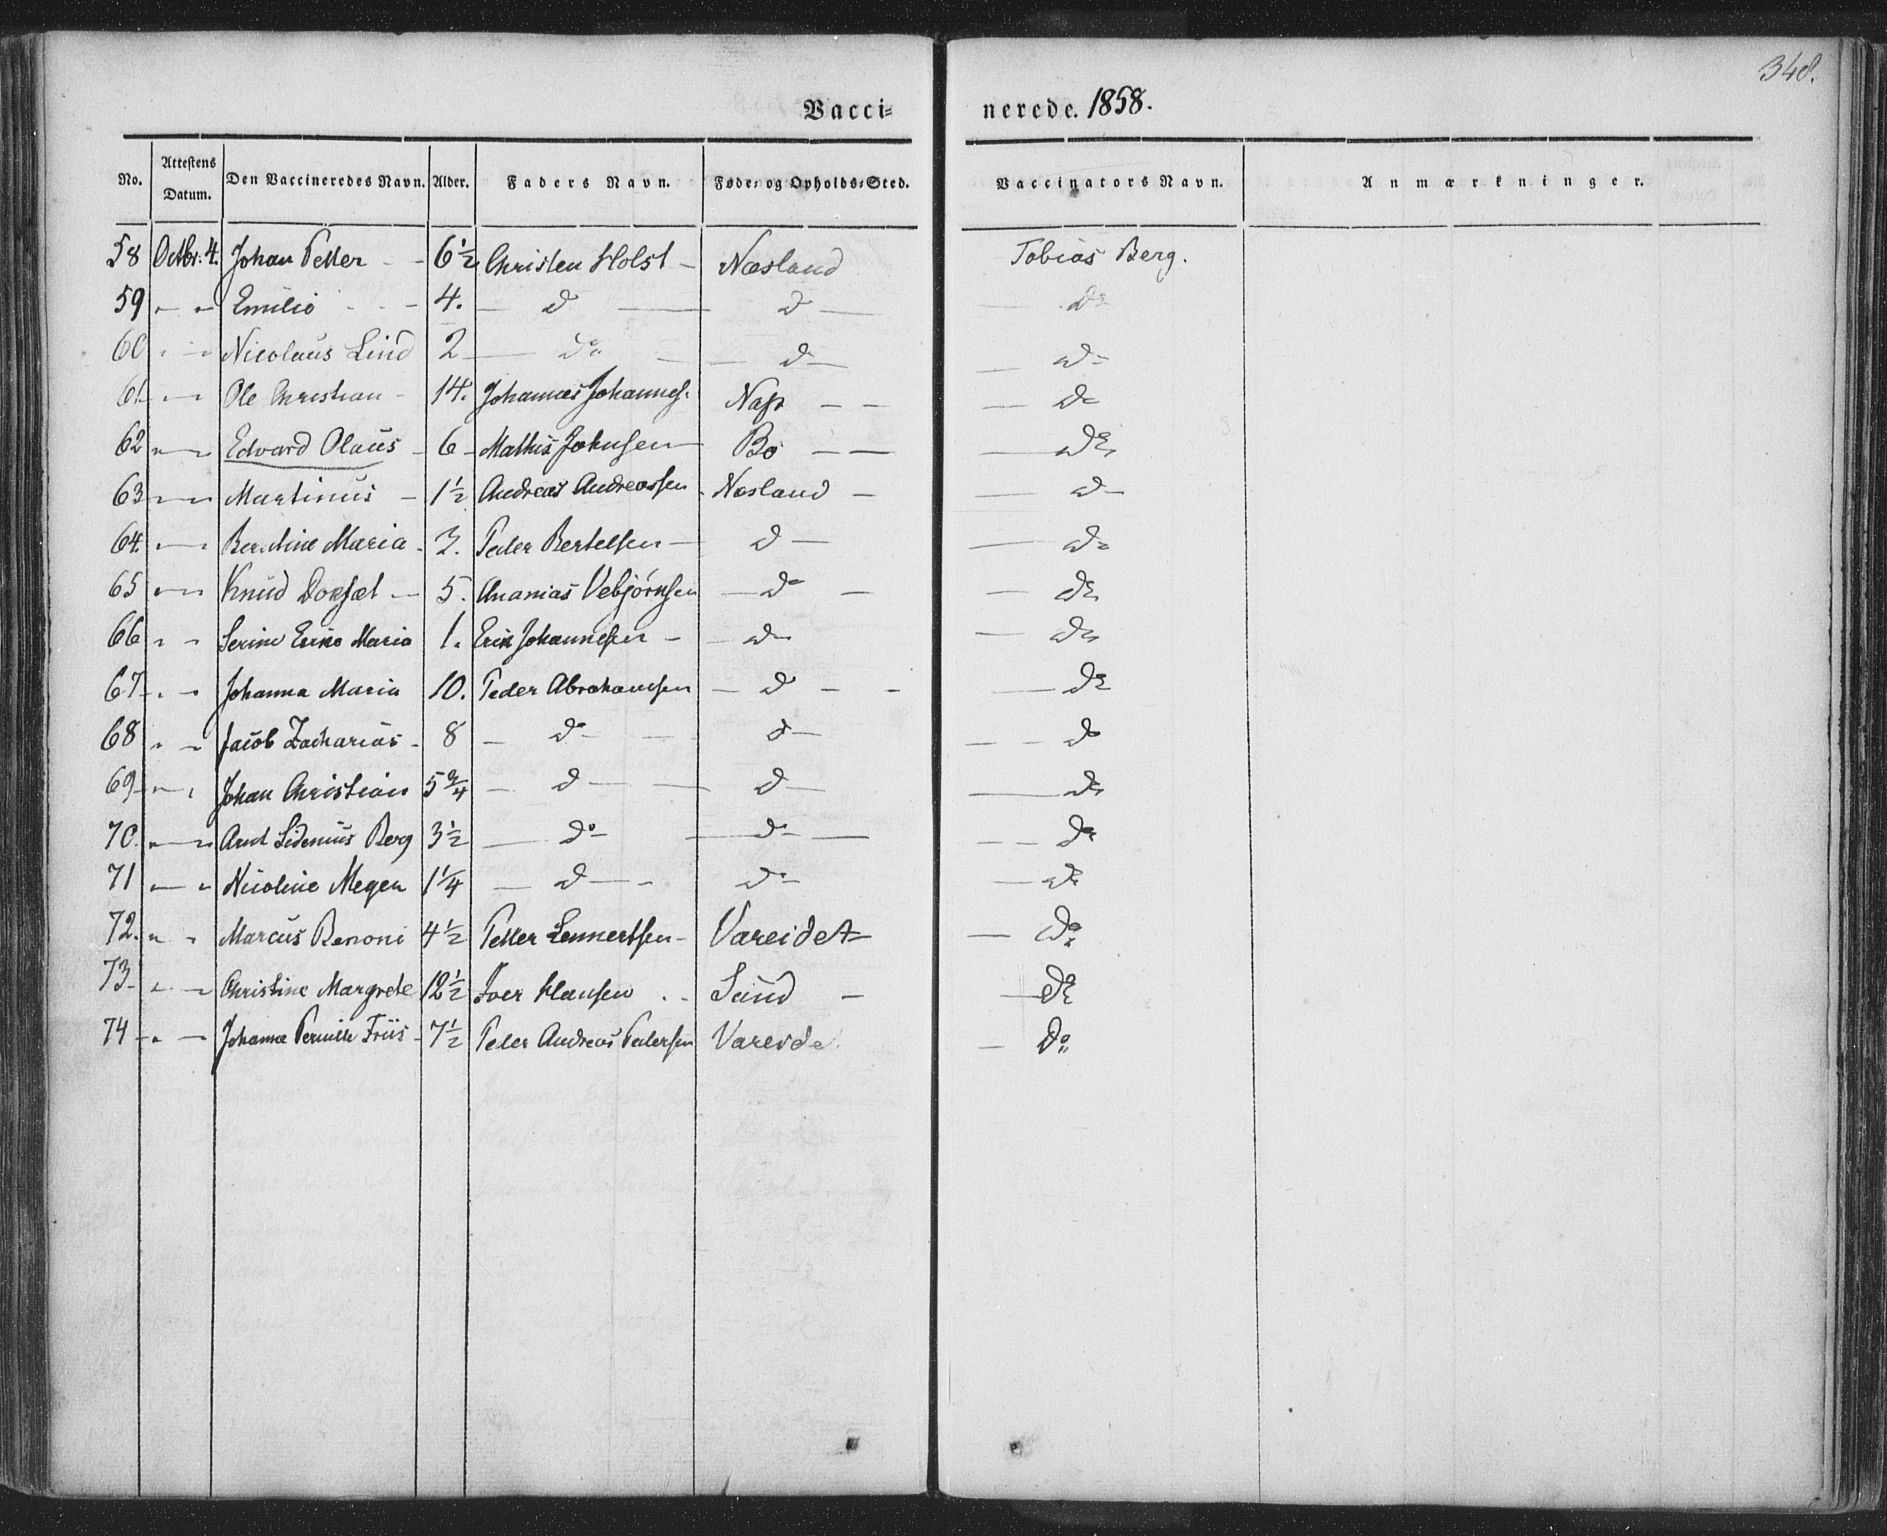 348.
Vacci- nerede. 1858.
No. Attestens Datum. Den Vaccineredes Navn. Alder. Faders Navn. Føde- og Opholds-Sted. Vaccinators Navn. Anmærkninger.
58 Octbr. 4. Johan Petter - - 6 1/2 Christen Holst - Næsland Tobias Berg.
59 " — " Emilie - - - 4. — d — d — — do
60 " — " Nicolaus Lind 2 — do — — d — — do
61 " — " Ole Christian - 14. Johannes Johannes. Nap — — — do
62 " — " Edvard Olaus - 6 - Mathis Johnsen — Bø — — — do
63 " — " Martinus — 1 1/2 Andreas Andreassen Næsland — — do
64. " — " Maria - 3. Peder Bertelsen — d — — do
65 " — " Knud — 5. Ananias Vebjørnsen — do — — do
66 " " Serine Maria 1. Erik Johannesen — — do — do
67 - " — " Johanna Maria 10. Peder Abrahamsen — d — - — do
68 " — " Jacob Zacharias - 8 — do — — d — — — do
69 " — " Johan Christian 5 3/4 — d — — d — — do
70. " — " Arnt Sidenius Berg 3 1/2 — do — — do — — — do
71 " — " Nicoline Meyer 1 1/4 — d — - do — — do
72. " " Marcus Benoni 4 1/2 Petter Lennertsen - Vareidet — — do
73 - " — " Christine Margrete 12 1/2 Iver Hansen . - Sund — — do
74 - " — Johanna Pernille Friis - 7 1/2 Peder Andreas Pedersen Vareide. — do